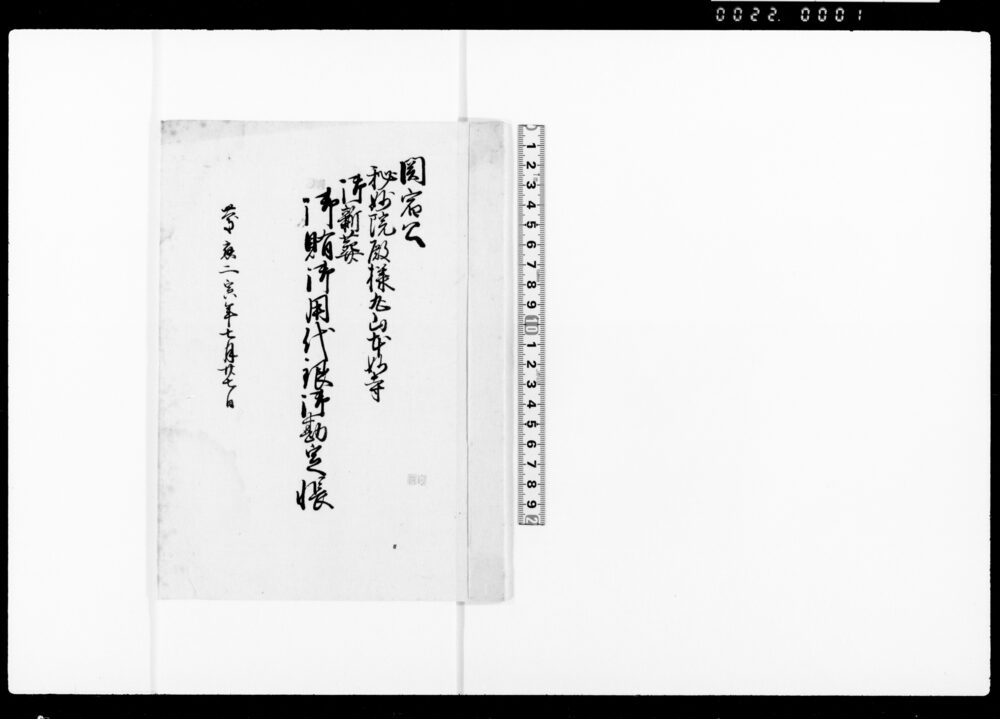 0022. 0001
関宿公
秘妙院殿様丸山本妙寺
御新葬
御賄御用代銀御勘定帳
慶応二寅年七月廿七日
1 2 3 4 5 6 7 8 9 10 1 2 3 4 5 6 7 8 9 2